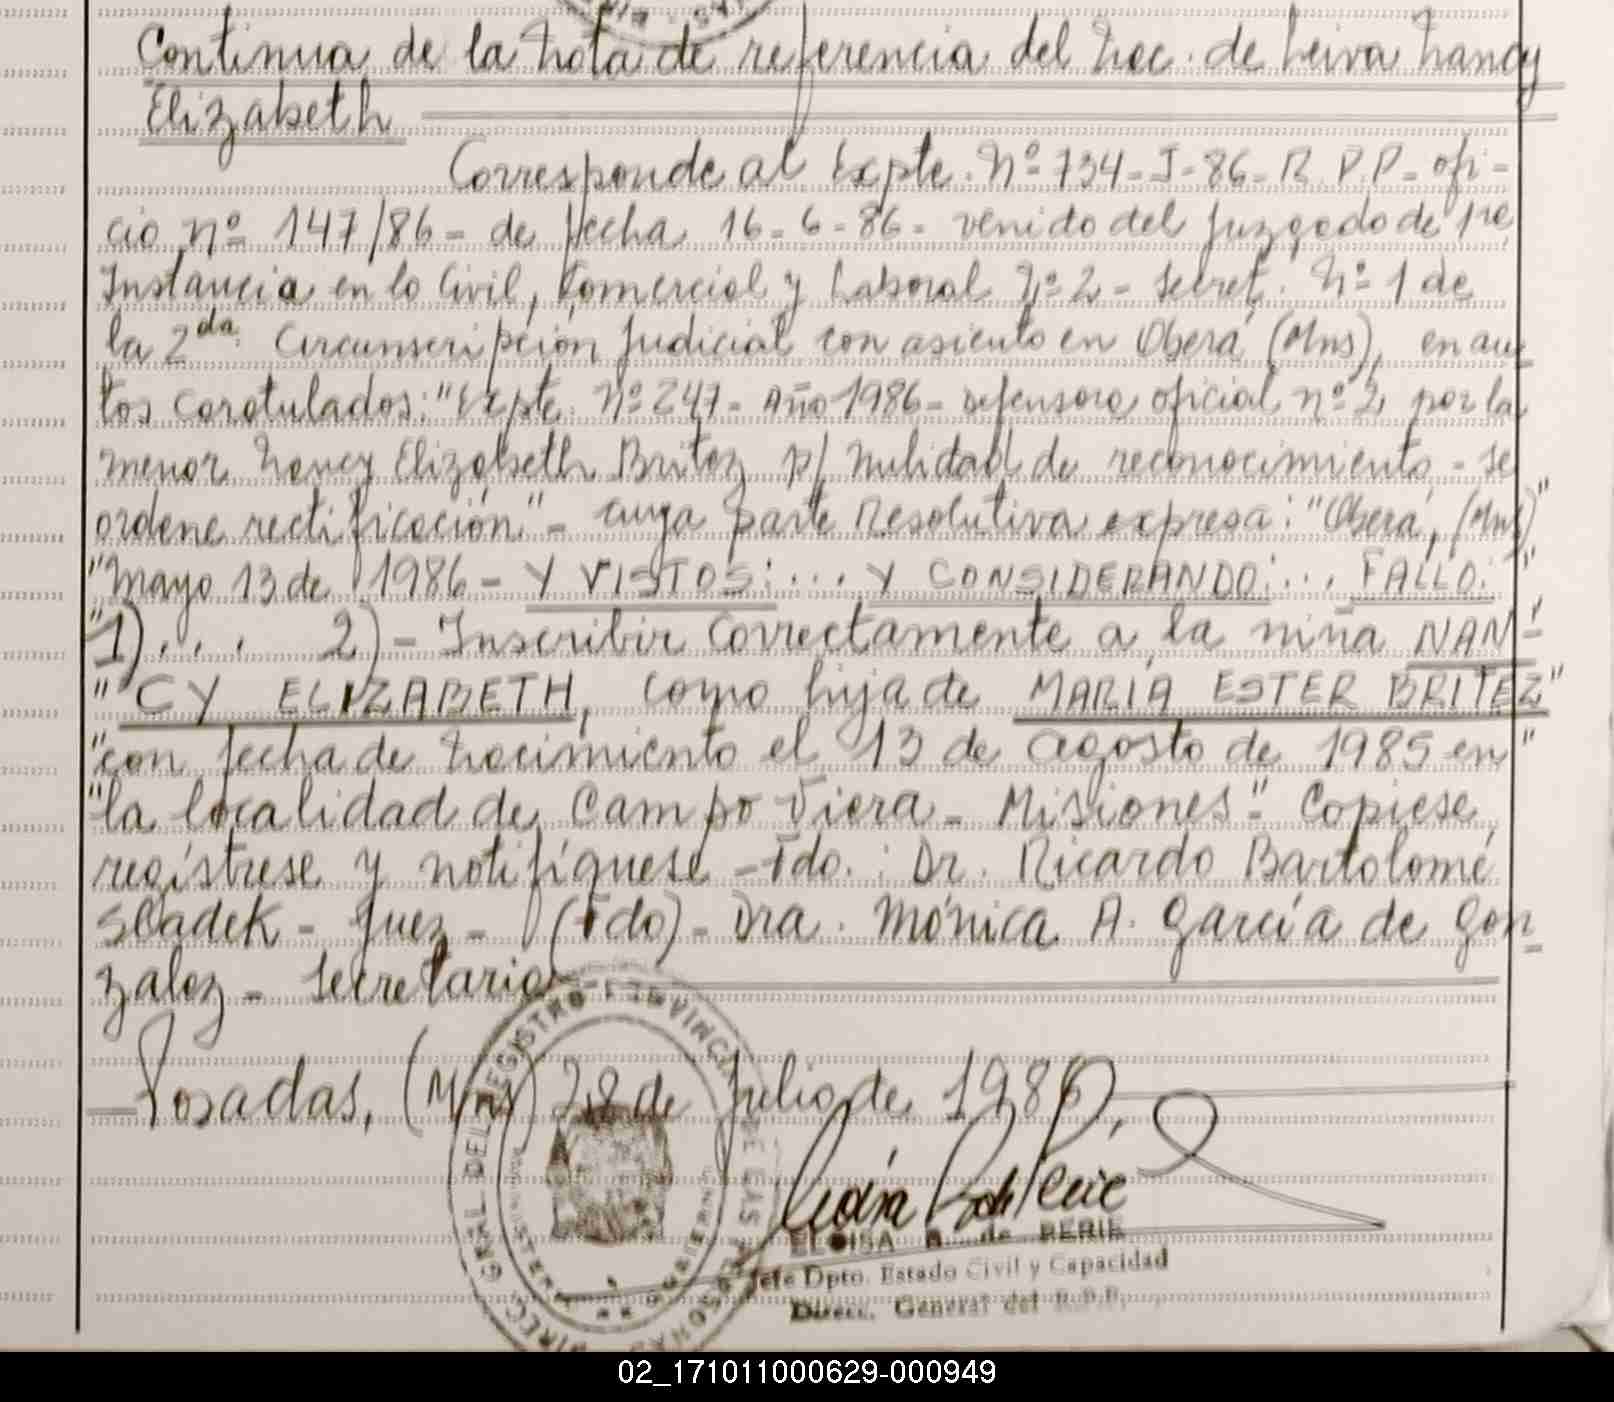 Continua de la Nota de referencia del Nac. de Leiva Nancy
Elizabeth
Corresponde al Expte. Nº 734-J-86-R.P.P- ofi-
cio nº 147/86- de fecha 16-6-86- venido del Juzgado de 1ra
Instancia en lo Civil, Comercial y Laboral Nº 2- Secret. Nº 1 de
la 2da. Circunscripción Judicial con asiento en Oberá (Mns), en au-
tos caratulados: "Expte. Nº 247- Año 1986- Defensora oficial nº 2, por la
menor Nancy Elizabeth Britez p/ Nulidad de reconocimiento - se
ordene rectificación"- cuya parte Resolutiva expresa: "Oberá, (Mns)"
"Mayo 13 de 1986- Y VISTOS:... Y CONSIDERANDO:... FALLO:"
"1)... 2)- Inscribir correctamente a la niña NAN-"
"CY ELIZABETH, como hija de MARÍA ESTER BRITEZ"
"con fecha de nacimiento el 13 de agosto de 1985 en"
"la localidad de Campo Viera- Misiones"- Copiese,
regístrese y notifíquese -Fdo.: Dr. Ricardo Bartolomé
Sladek- Juez- (Fdo)- Dra. Mónica A. García de Gon-
zalez- Secretaria
Posadas, (Mns) 28 de Julio de 1986.
ELOISA B. de PERIE
Jefe Dpto. Estado Civil y Capacidad
Direcc. General del R.P.P.
DIRECC. GRAL. DEL REGISTRO PROVINCIAL DE LAS PERSONAS
MINISTERIO DE GOBIERNO
02_171011000629-000949